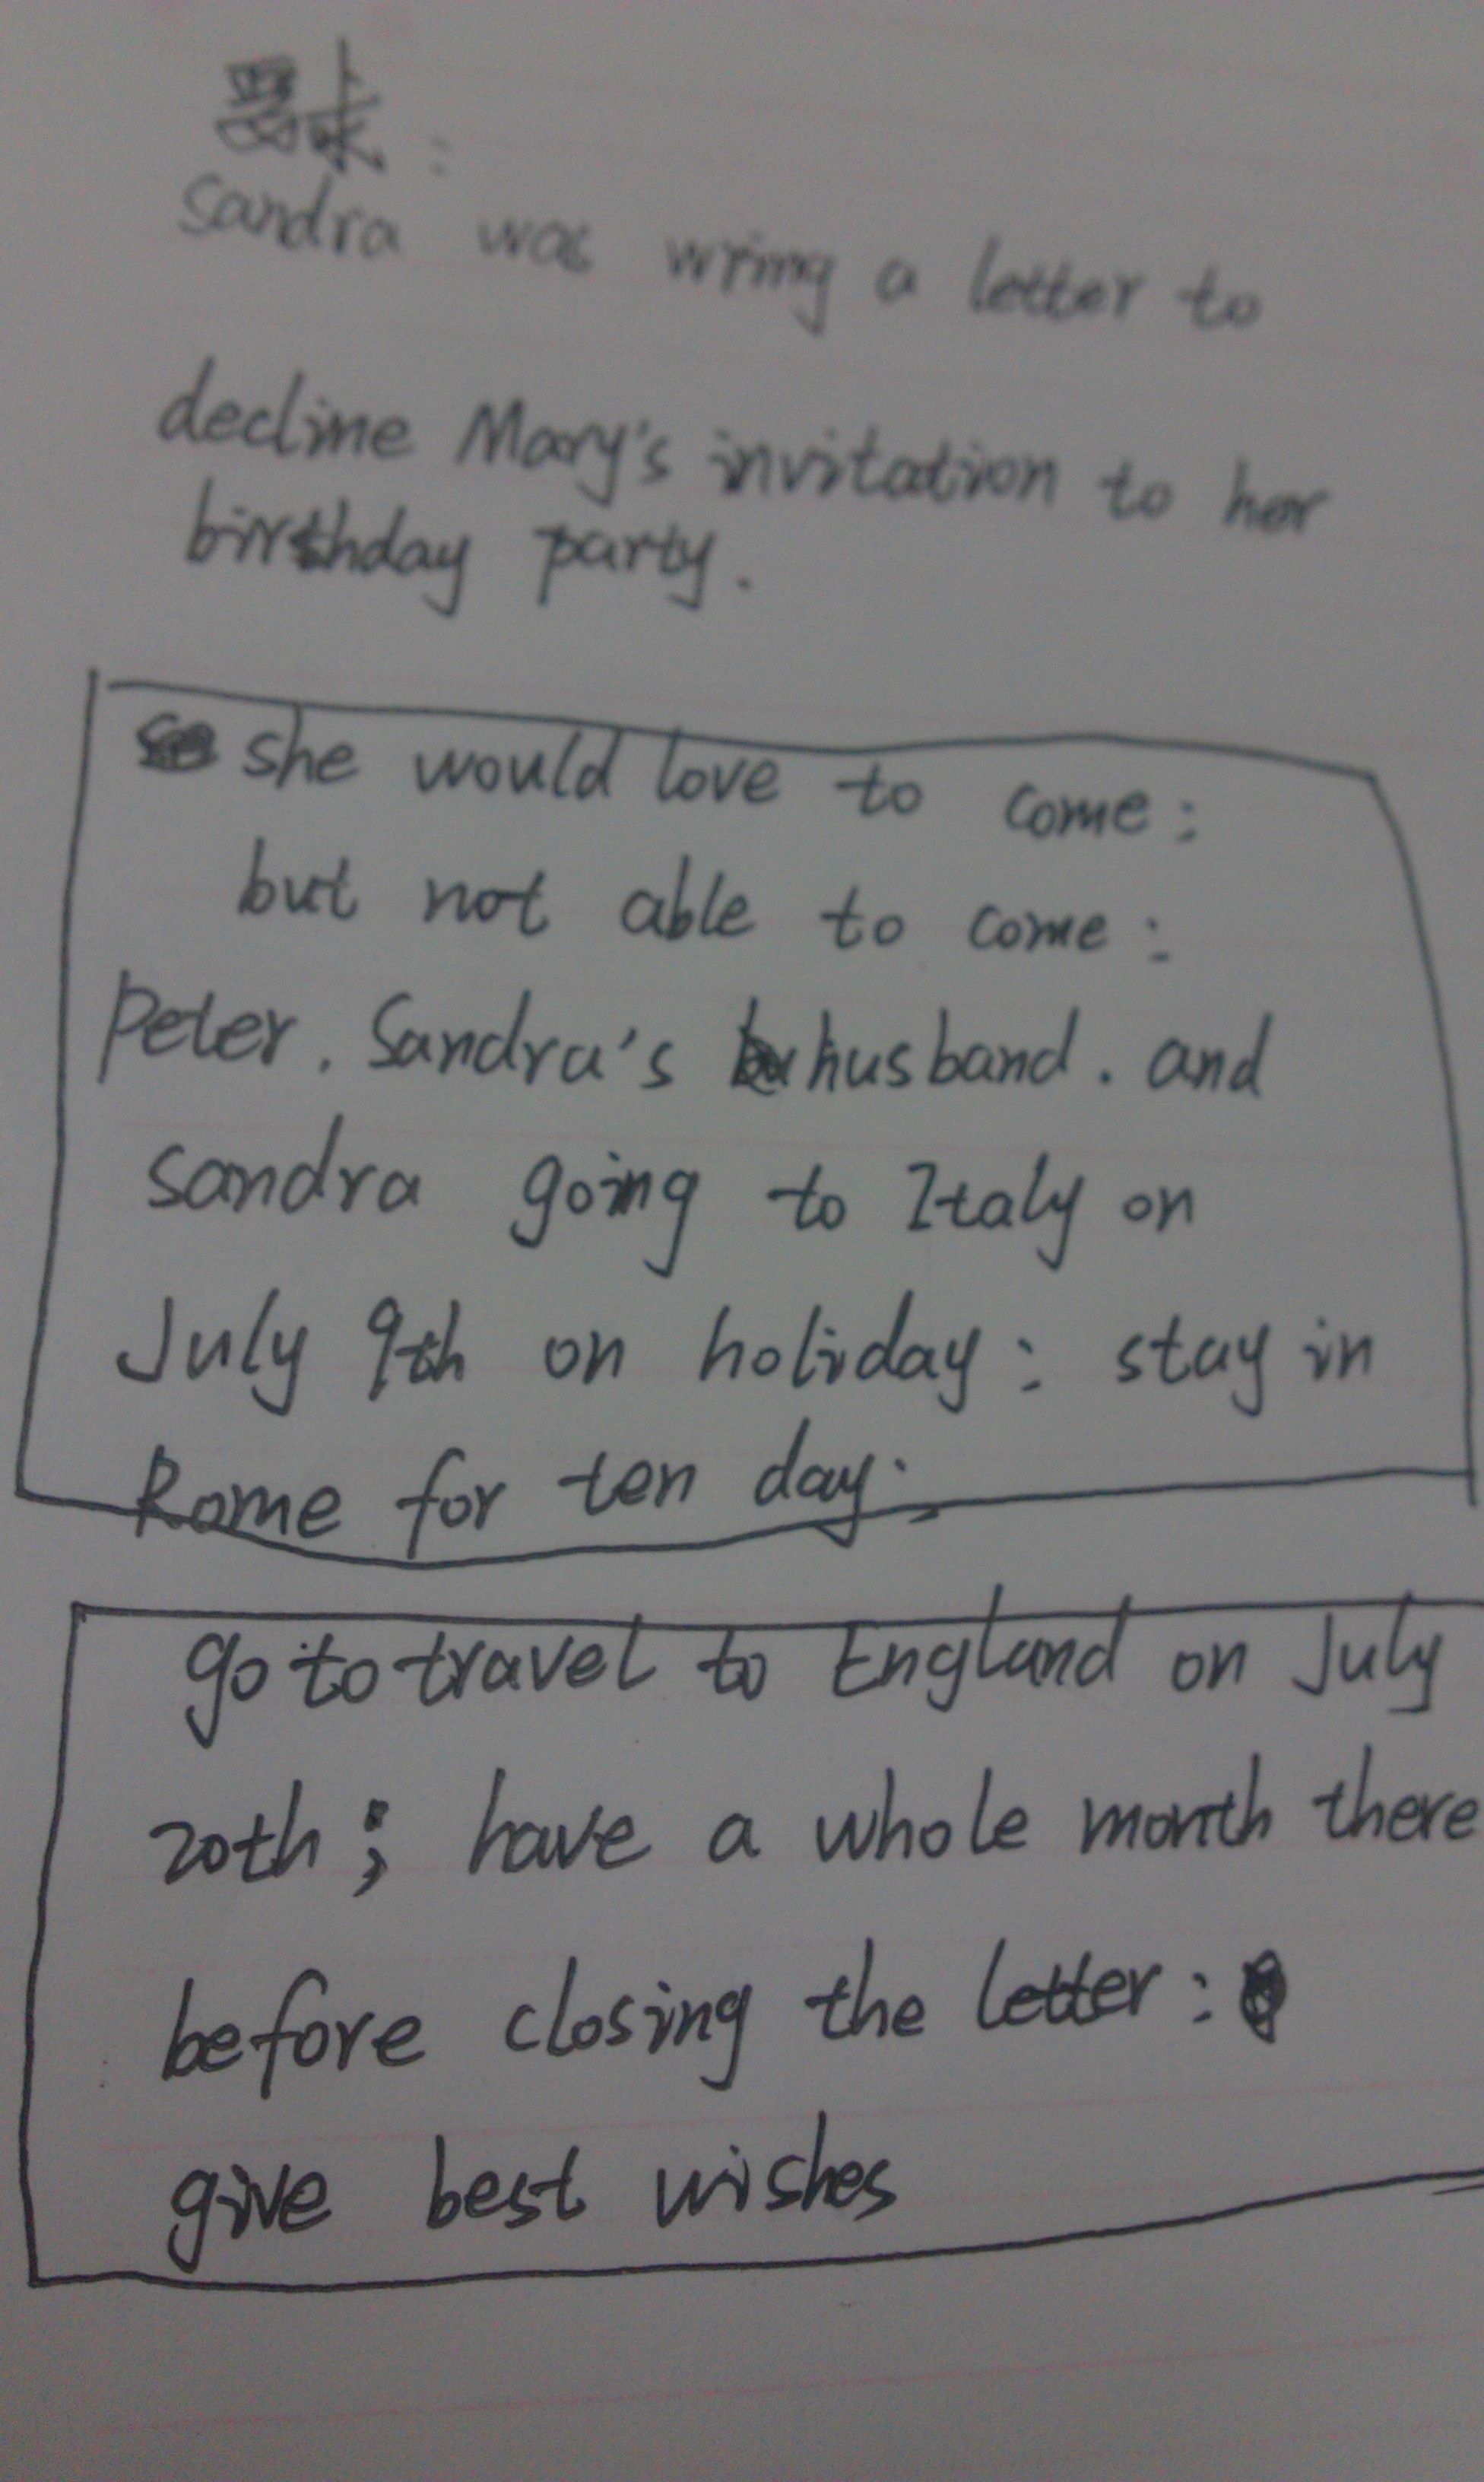 要求:
Sandra was wring a letter to
decline Mary's invitation to her
birthday party.
she would love to come:
but not able to come:
Peter. Sandra's husband. and
Sandra going to Italy on
July 9th on holiday: stay in
Rome for ten day.
go to travel to England on July
20th; have a whole month there
before closing the letter:
give best wishes